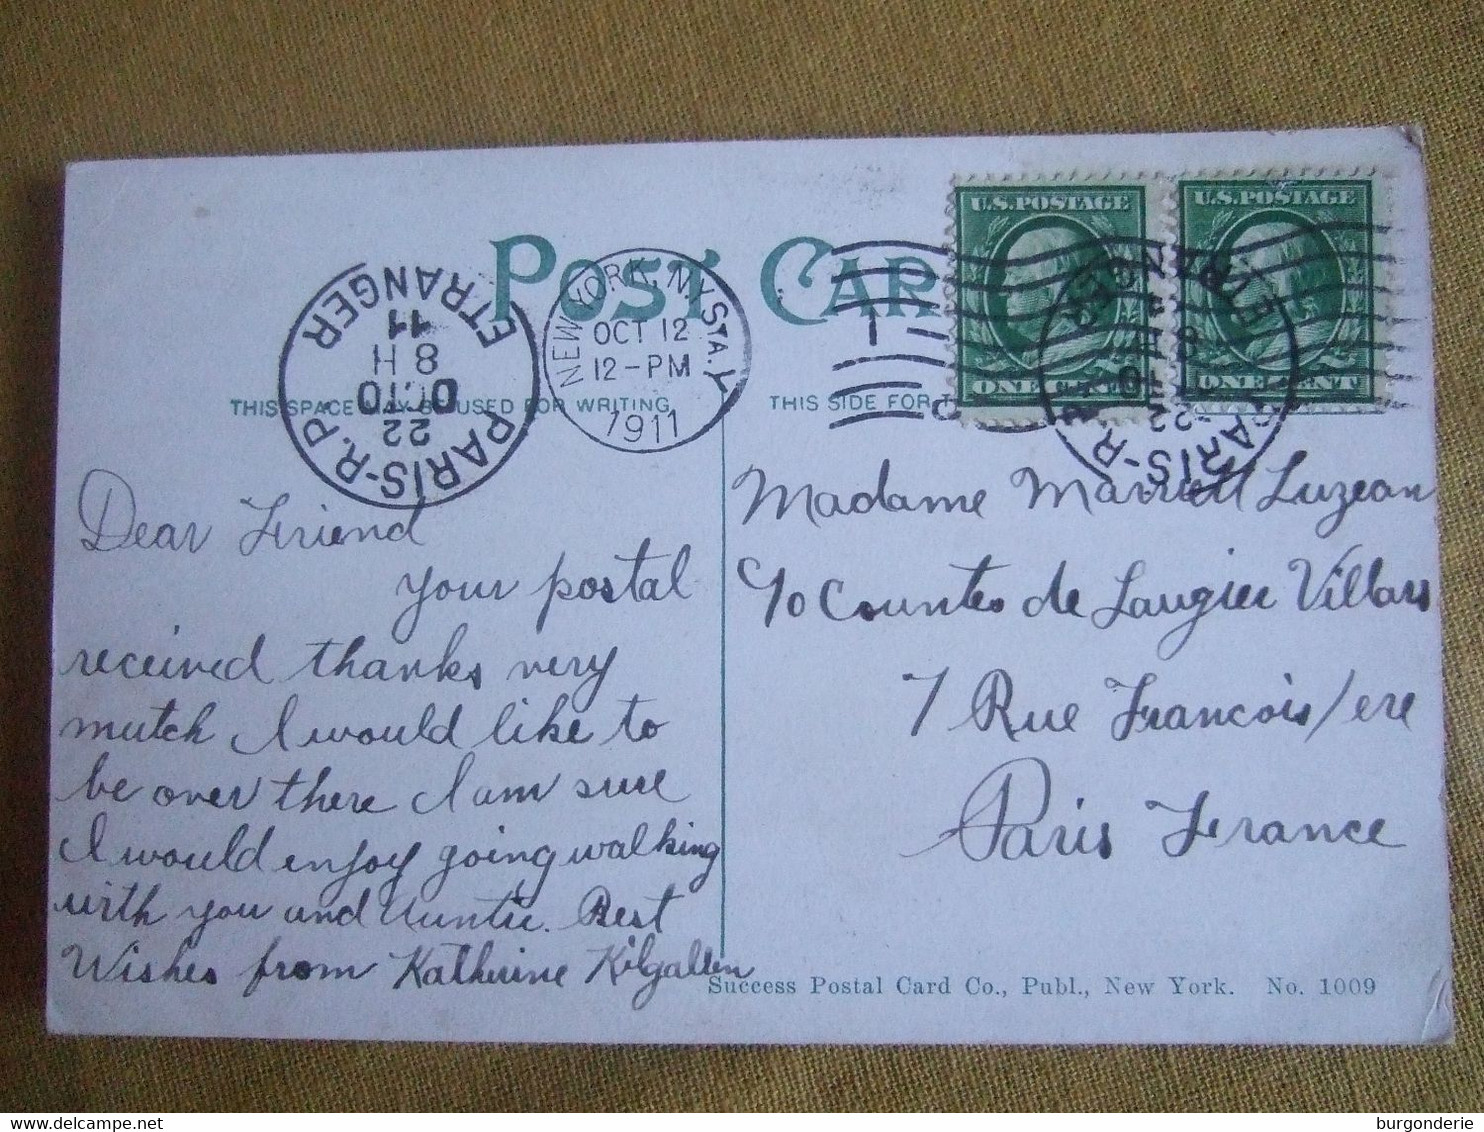 POST CAR
THIS SPACE MAY BE USED FOR WRITING
THIS SIDE FOR T
NEW YORK, N.Y. STA. Y
OCT 12
12-PM
1911
1
PARIS-R.P.
ETRANGER
22
OC.10
8 H
11
U.S. POSTAGE
ONE CENT
U.S. POSTAGE
ONE CENT
PARIS-R.P.
ETRANGER
22
Dear Friend
your postal
received thanks very
mutch I would like to
be over there I am sure
I would enjoy going walking
with you and Auntie. Best
Wishes from Katherine Kilgallen
Madame Luzeau
c/o Countes de Laugier Villars
7 Rue Francois/ere
Paris France
Success Postal Card Co., Publ., New York. No. 1009
burgonderie
delcampe.net